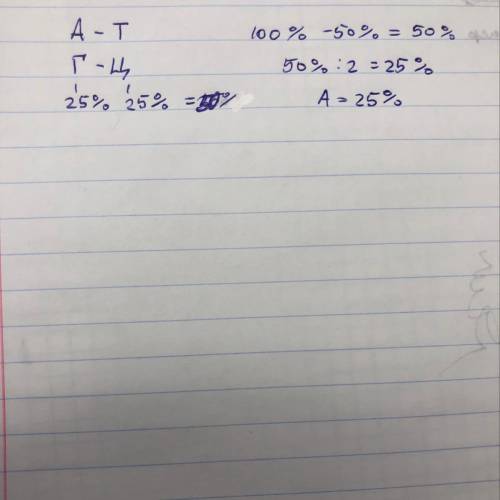 А - Т 100% - 50% = 50%
Г - Ц 50% : 2 = 25%
25% 25% = 50% А = 25%